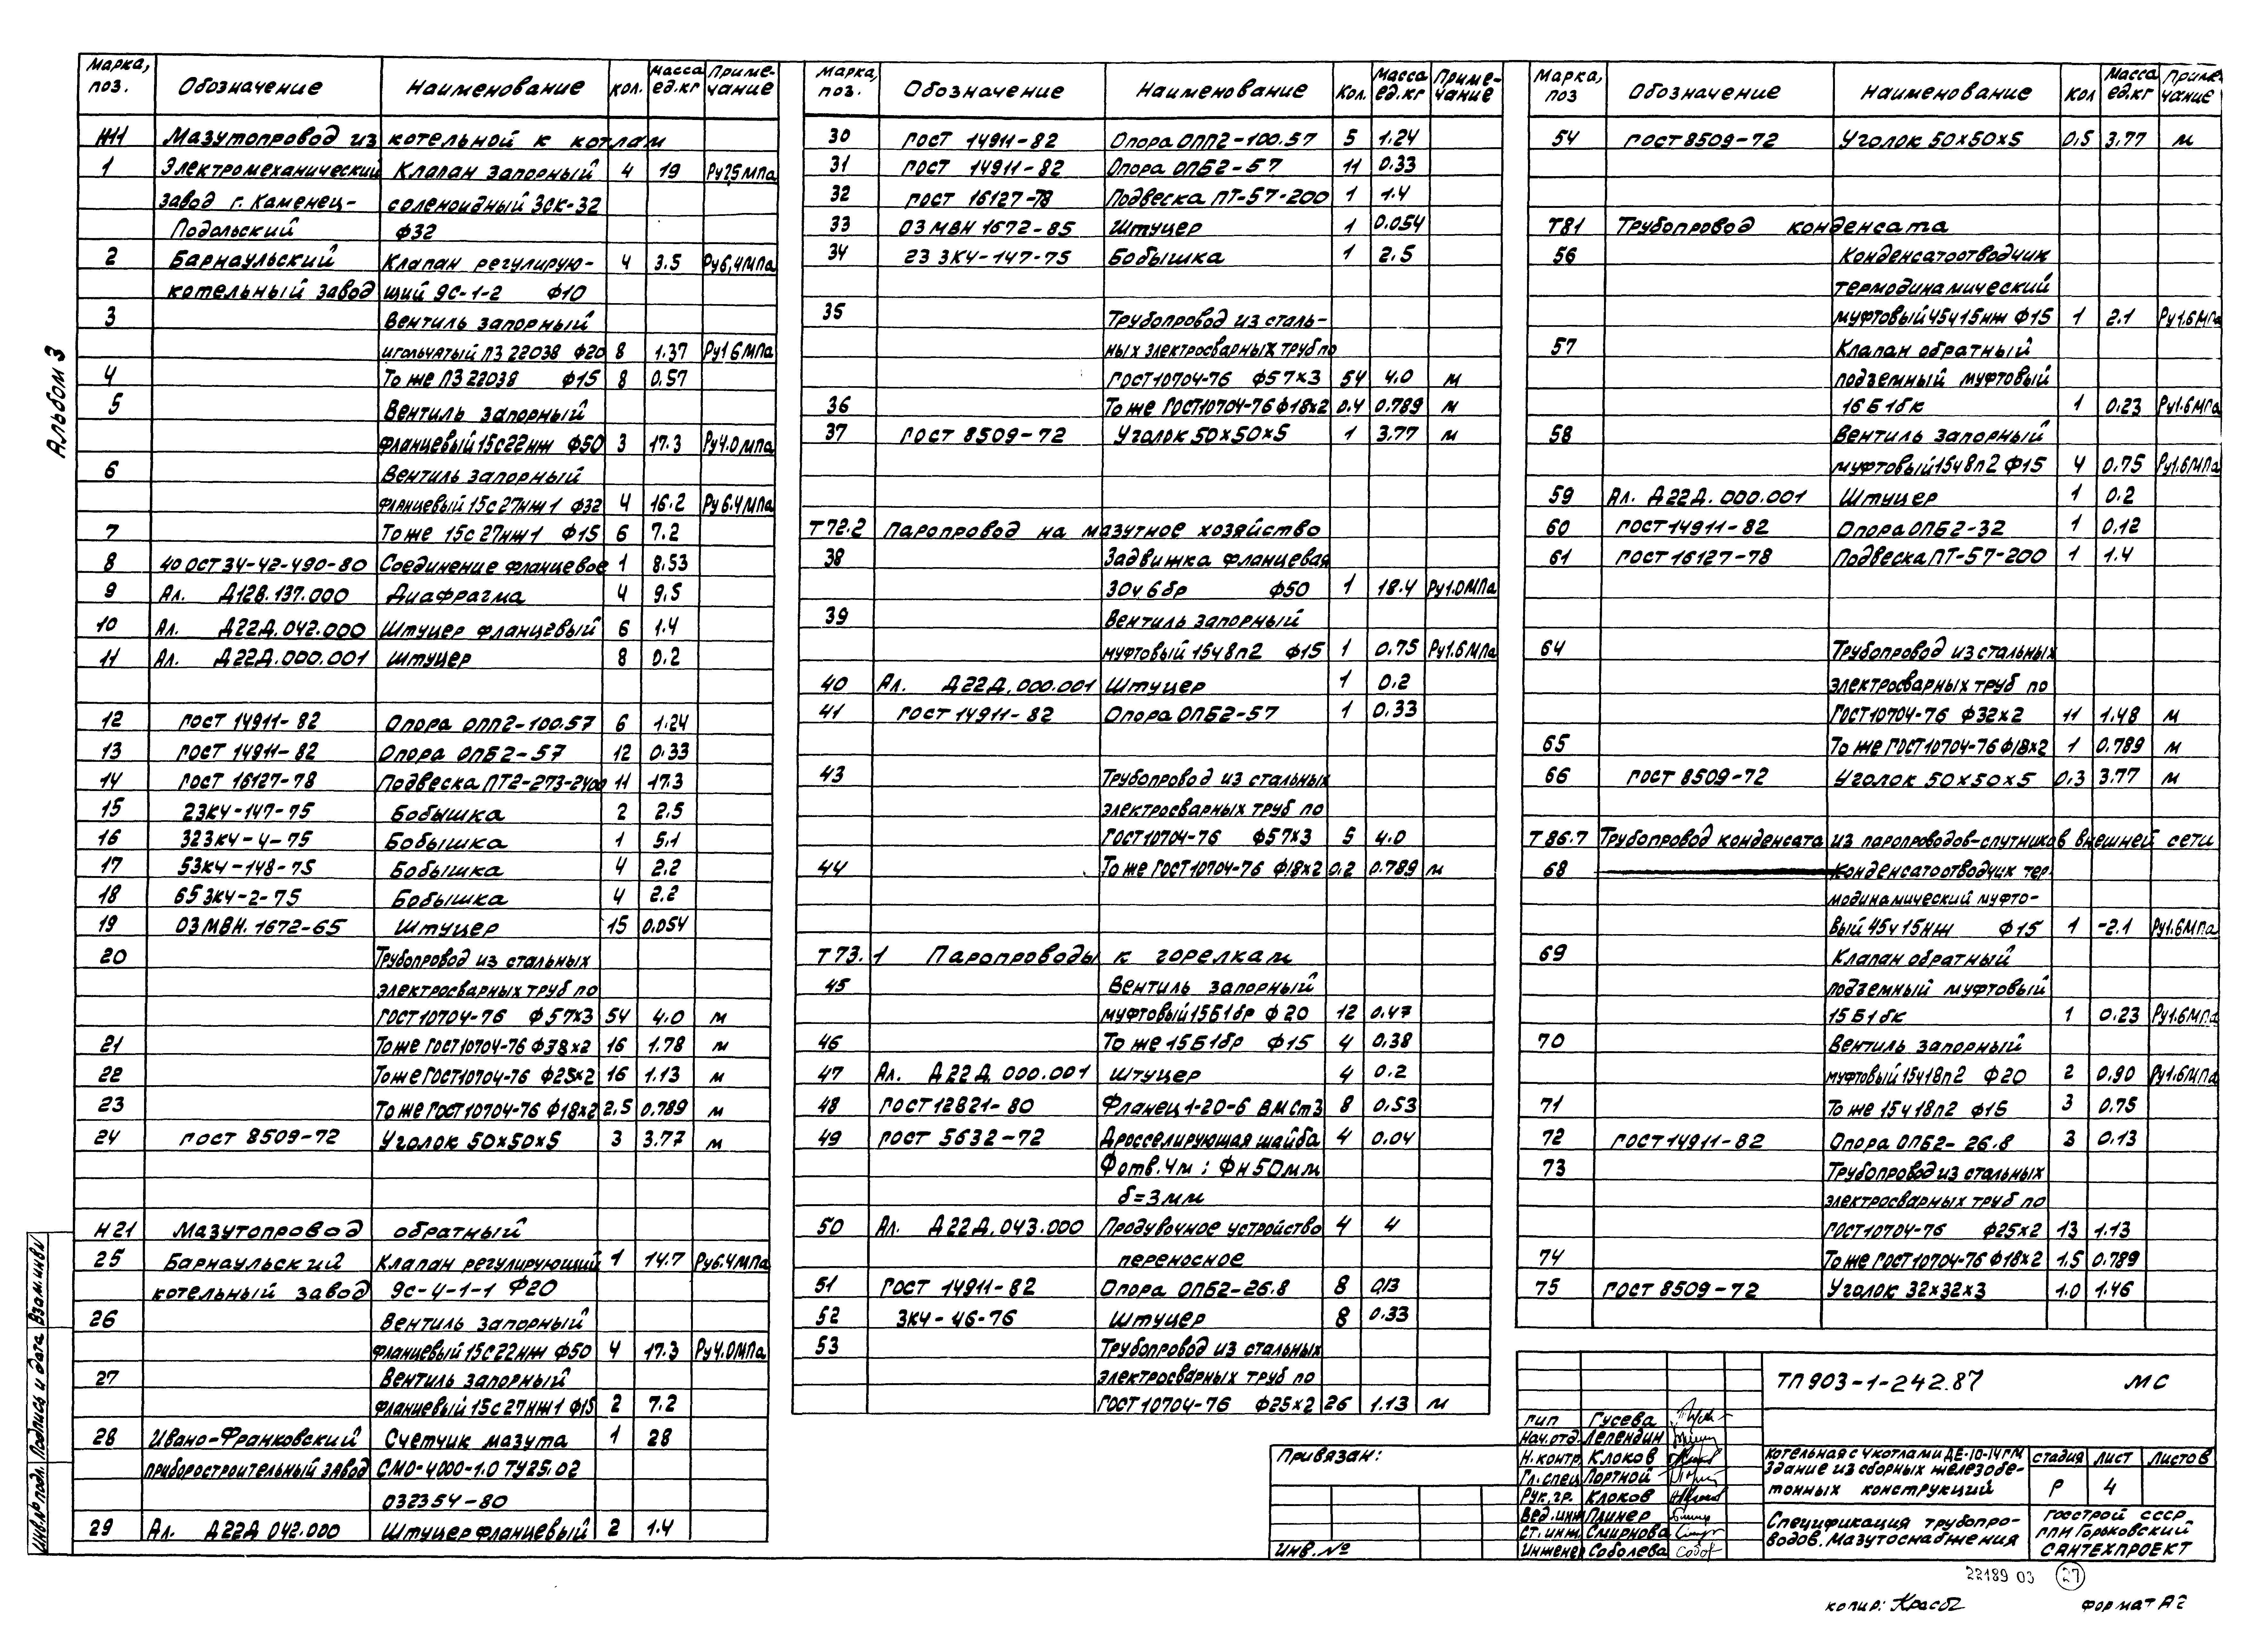 Альбом 3
Марка, поз. Обозначение Наименование Кол. Масса ед.кг Приме-чание
Н11 Мазутопровод из котельной к котлам
1 Электромеханический Клапан запорный 4 19 Ру25мПа
завод г. Каменец- соленоидный ЗСК-32
Подольский ф32
2 Барнаульский Клапан регулирую- 4 3.5 Ру6,4мПа
котельный завод щий 9с-1-2 ф10
3 Вентиль запорный
игольчатый ПЗ 22038 ф20 8 1.37 Ру16мПа
4 То же ПЗ 22038 ф15 8 0.57
5 Вентиль запорный
фланцевый 15с22нж ф50 3 17.3 Ру4.0мПа
6 Вентиль запорный
фланцевый 15с27нж1 ф32 4 16.2 Ру6.4мПа
7 То же 15с27нж1 ф15 6 7.2
8 40 ОСТ 34-42-490-80 Соединение фланцевое 1 8.53
9 Ал. Д12В.137.000 Диафрагма 4 9.5
10 Ал. Д22Д.042.000 Штуцер фланцевый 6 1.4
11 Ал. Д22Д.000.001 Штуцер 8 0.2
12 ГОСТ 14911-82 Опора ОПП2-100.57 6 1.24
13 ГОСТ 14911-82 Опора ОПБ2-57 12 0.33
14 ГОСТ 16127-78 Подвеска ПТ2-273-2400 11 17.3
15 23К4-147-75 Бобышка 2 2.5
16 323К4-4-75 Бобышка 1 5.1
17 53К4-148-75 Бобышка 4 2.2
18 65 3К4-2-75 Бобышка 4 2.2
19 03 МВН.1672-65 Штуцер 15 0.054
20 Трубопровод из стальных
электросварных труб по
ГОСТ10704-76 ф57×3 54 4.0 м
21 То же ГОСТ10704-76 ф38×2 16 1.78 м
22 То же ГОСТ10704-76 ф25×2 16 1.13 м
23 То же ГОСТ10704-76 ф18×2 2.5 0.789 м
24 ГОСТ 8509-72 Уголок 50×50×5 3 3.77 м
Н21 Мазутопровод обратный
25 Барнаульский Клапан регулирующий 1 14.7 Ру6.4мПа
котельный завод 9с-4-1-1 ф20
26 Вентиль запорный
фланцевый 15с22нж ф50 4 17.3 Ру4.0мПа
27 Вентиль запорный
фланцевый 15с27нж1 ф15 2 7.2
28 Ивано-Франковский Счетчик мазута 1 28
приборостроительный завод СМО-4000-1.0 ТУ25.02
032354-80
29 Ал. Д22Д 042.000 Штуцер фланцевый 2 1.4
Марка, поз. Обозначение Наименование Кол. Масса ед.кг Приме-чание
30 ГОСТ 14911-82 Опора ОПП2-100.57 5 1.24
31 ГОСТ 14911-82 Опора ОПБ2-57 11 0.33
32 ГОСТ 16127-78 Подвеска ПТ-57-200 1 1.4
33 03 МВН 1672-85 Штуцер 1 0.054
34 23 3К4-147-75 Бобышка 1 2.5
35 Трубопровод из сталь-
ных электросварных труб по
ГОСТ10704-76 ф57×3 54 4.0 м
36 То же ГОСТ10704-76 ф18×2 0.4 0.789 м
37 ГОСТ 8509-72 Уголок 50×50×5 1 3.77 м
Т72.2 Паропровод на мазутное хозяйство
38 Задвижка фланцевая
30ч6бр ф50 1 18.4 Ру1.0мПа
39 Вентиль запорный
муфтовый 15ч8п2 ф15 1 0.75 Ру1.6мПа
40 Ал. Д22Д.000.001 Штуцер 1 0.2
41 ГОСТ 14911-82 Опора ОПБ2-57 1 0.33
43 Трубопровод из стальных
электросварных труб по
ГОСТ10704-76 ф57×3 5 4.0
44 То же ГОСТ10704-76 ф18×2 0.2 0.789 м
Т73.1 Паропроводы к горелкам
45 Вентиль запорный
муфтовый 15Б1бр ф20 12 0.47
46 То же 15Б1бр ф15 4 0.38
47 Ал. Д22Д.000.001 Штуцер 4 0.2
48 ГОСТ 12821-80 Фланец 1-20-6 ВМСт3 8 0.53
49 ГОСТ 5632-72 Дросселирующая шайба 4 0.04
Фотв.4м; Фн50мм
б=3мм
50 Ал. Д22Д.043.000 Продувочное устройство 4 4
переносное
51 ГОСТ 14911-82 Опора ОПБ2-26.8 8 0,13
52 3К4-46-76 Штуцер 8 0.33
53 Трубопровод из стальных
электросварных труб по
ГОСТ10704-76 ф25×2 26 1.13 м
Марка, поз Обозначение Наименование Кол Масса ед.кг Приме чание
54 ГОСТ 8509-72 Уголок 50×50×5 0.5 3.77 м
Т81 Трубопровод конденсата
56 Конденсатоотводчик
термодинамический
муфтовый 45ч15нж ф15 1 2.1 Ру1.6мПа
57 Клапан обратный
подземный муфтовый
16Б1бк 1 0.23 Ру1.6мПа
58 Вентиль запорный
муфтовый 15ч8п2 ф15 4 0.75 Ру1.6мПа
59 Ал. Д22Д.000.001 Штуцер 1 0.2
60 ГОСТ 14911-82 Опора ОПБ2-32 1 0.12
61 ГОСТ 16127-78 Подвеска ПТ-57-200 1 1.4
64 Трубопровод из стальных
электросварных труб по
ГОСТ10704-76 ф32×2 11 1.48 м
65 То же ГОСТ10704-76 ф18×2 1 0.789 м
66 ГОСТ 8509-72 Уголок 50×50×5 0.3 3.77 м
Т86.7 Трубопровод конденсата из паропроводов-спутников внешней сети
68 Конденсатоотводчик тер
модинамический муфто-
вый 45ч15нж ф15 1 -2.1 Ру1.6мПа
69 Клапан обратный
подземный муфтовый
15Б1бк 1 0.23 Ру1.6мПа
70 Вентиль запорный
муфтовый 15ч18п2 ф20 2 0.90 Ру1.6мПа
71 То же 15ч18п2 ф15 3 0.75
72 ГОСТ 14911-82 Опора ОПБ2-26.8 3 0.13
73 Трубопровод из стальных
электросварных труб по
ГОСТ10704-76 ф25×2 13 1.13
74 То же ГОСТ10704-76 ф18×2 1.5 0.789
75 ГОСТ 8509-72 Уголок 32×32×3 1.0 1.46
Инв.№ подл. Подпись и дата Взам.инв№
Привязан:
Инв.№
ТП 903-1-242.87 МС
ГИП Гусева
Нач.отд. Лепендин
Н.контр. Клоков
Гл.спец Портной
Рук.гр. Клоков
Вед.инж Плинер
Ст.инж. Смирнова
Инженер Соболева
Котельная с 4 котлами ДЕ-10-14ГМ
Здание из сборных железобе-
тонных конструкций
стадия лист листов
Р 4
Спецификация трубопро-
водов. Мазутоснабжения
Госстрой СССР
ГПИ Горьковский
САНТЕХПРОЕКТ
22189 03 27
копир: формат А2